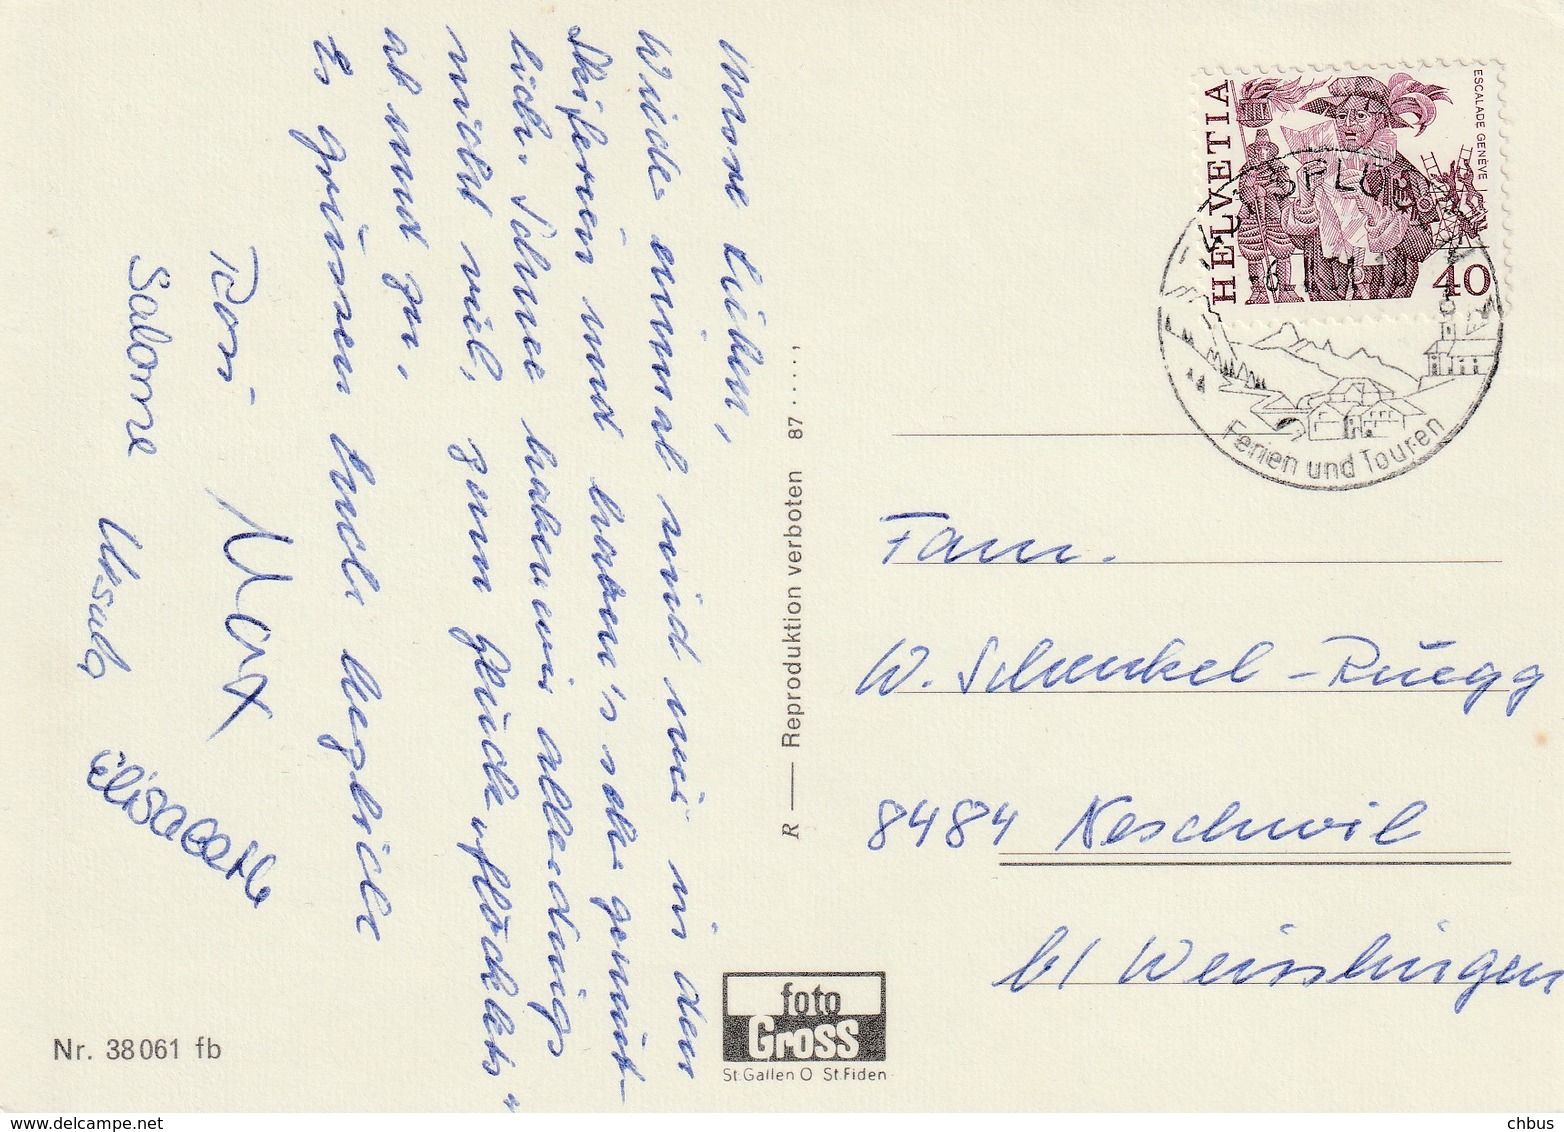 Unsre Lieben,
Wieder einmal sind wir in den
Skiferien und haben's sehr gemüt-
lich. Schnee haben wir allerdings
nicht viel, zum Glück "flöckelets"
ab und zu.
Es grüssen Euch herzlich
Rosi Max
Salome Ursula Elisabeth
Nr. 38061 fb
R — Reproduktion verboten 87 . . . . . ,
foto
Gross
St.Gallen O St.Fiden
HELVETIA
ESCALADE GENÈVE
40
SPLÜGEN
Ferien und Touren
Fam.
W. Schenkel-Rüegg
8484 Neschwil
b/ Weisslingen
delcampe.net
chbus